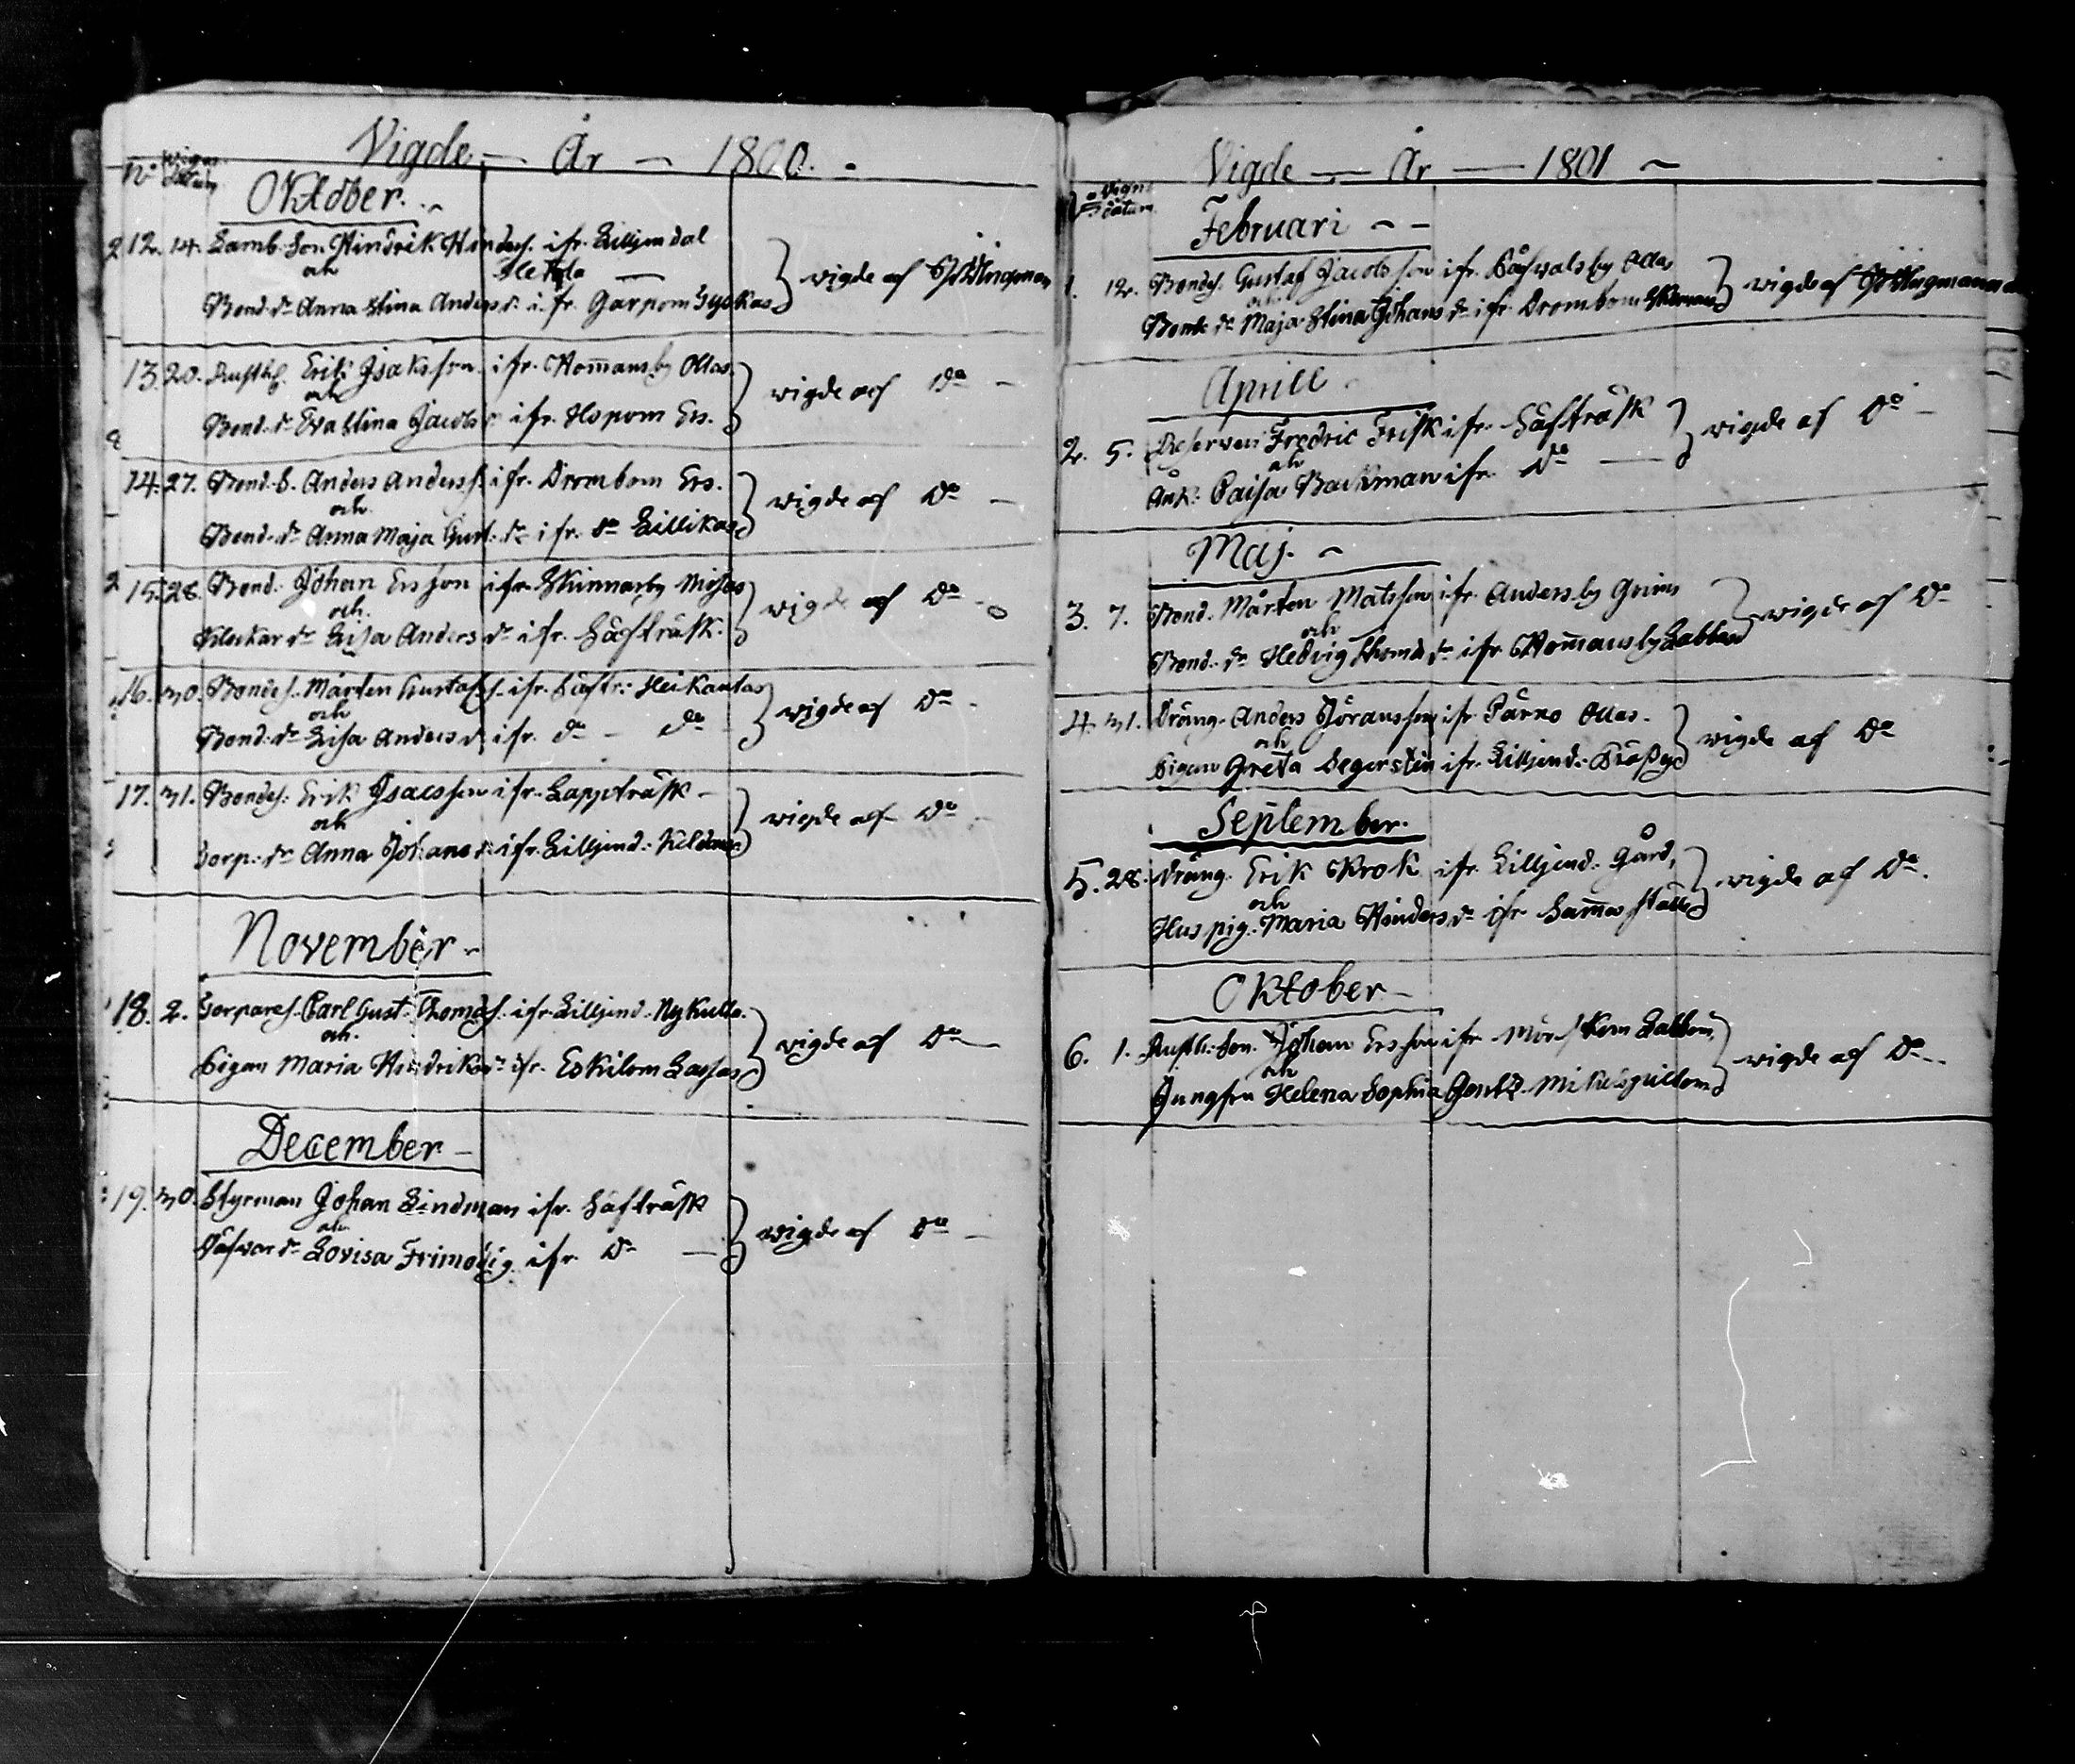 Vigde — År — 1800. -
No Vigns datum
Oktober. -
12. 14. Lamb. Son Hindrik Hindersf. ifr. Lilljendal
och Hetula —
Bond. dr Anna Stina Anders dr ifr. Garpom Tyskas } vigde af
13. 20. Rusth. Erik Isaksson ifr. Hom̄ansby Ollas
och
Bond. dr Eva Stina Jacobs dr ifr. Hopom Ers. } vigde af Do -
14. 27. Bond. S. Anders Andersf. ifr. Drombom Ers.
och
Bond. dr Anna Maja Gust. dr ifr. Do Lillikas } vigde af Do -
15. 28. Bond. Johan Ersson ifr. Skinnarby Mosas
och
Klockar dr Lisa Anders dr ifr. Säfträsk. } vigde af Do -
16. 30. Bondes. Mårten Gustafs f. ifr. Säftr: Heikantas
och
Bond. dr Lisa Anders d. ifr. do - do } vigde af Do -
17. 31. Bondes: Erik Isacsson ifr. Lappträsk -
och
Torp. dr Anna Johans d: ifr. Lilljend: } vigde af Do -
November -
18. 2. Torpares. Carl Gust. Thomas f. ifr. Lilljend. Nykulla.
och.
Pigan Maria Hindriks dr ifr. Eskilom Lassas } vigde af Do -
December -
19. 30. Styrman Johan Lindman ifr. Säfträsk
och
dr Lovisa Frimodig ifr Do — } vigde af Do -
Vigde — År — 1801 ~
No Vigns datum
Februari - -
1. 12. Bondes. Gustaf Jacobsson ifr. Ollas
och
Bonde dr Maja Stina Johans dr ifr. Drombom } vigde af
Aprill
2. 5. Reserven Fredric Frisk ifr. Säfträsk
och
Änk: Caisa Backman ifr. Do — } vigde af Do -
Maj. ~
3. 7. Bond. Mårten Matsson ifr. Andersby Grims
och
Bond. dr Hedvig Thoms dr ifr Hom̄ansby Labbas } vigde af Do
4. 31. Dräng. Anders Jöransson ifr. Pärno Ollas.
och
Pigan Greta Segerstin ifr. Lilljend: } vigde af Do
September.
5. 28. Dräng. Erik Krok ifr. Lilljend: Gård,
och
Huspig. Maria Hinders dr ifr Sam̄a ställe } vigde af Do.
Oktober -
6. 1. Rusth. Son. Johan Ersson ifr Mörskom Labbas,
och
Jungfru Helena Sophia Gontz. Mikelspiltom } vigde af Do -